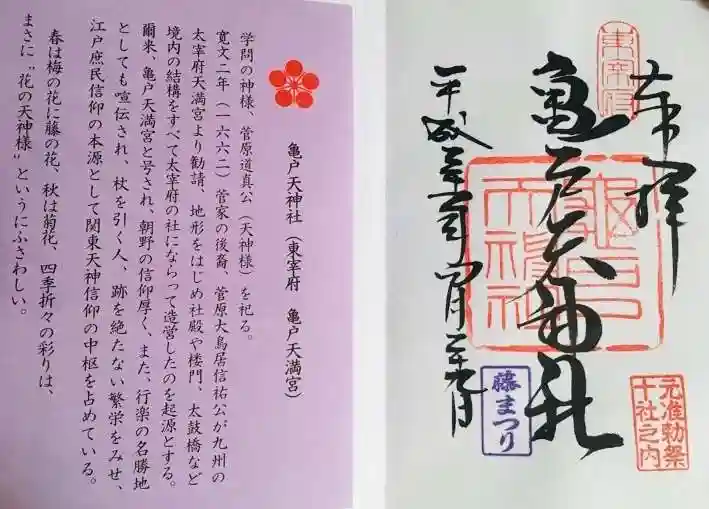 亀戸天神社（東宰府　亀戸天満宮）
学問の神様、菅原道真公（天神様）を祀る。
寛文二年（一六六二）菅家の後裔、菅原大鳥居信祐公が九州の
太宰府天満宮より勧請、地形をはじめ社殿や楼門、太鼓橋など
境内の結構をすべて太宰府の社にならって造営したのを起源とする。
爾来、亀戸天満宮と号され、朝野の信仰厚く、また、行楽の名勝地
としても喧伝され、杖を引く人、跡を絶たない繁栄をみせ、
江戸庶民信仰の本源として関東天神信仰の中枢を占めている。
春は梅の花に藤の花、秋は菊花、四季折々の彩りは、
まさに〝花の天神様〟というにふさわしい。
奉拝
東宰府
亀戸天神社
亀戸天神社
平成三十一年四月二十九日
藤まつり
元准勅祭
十社之内